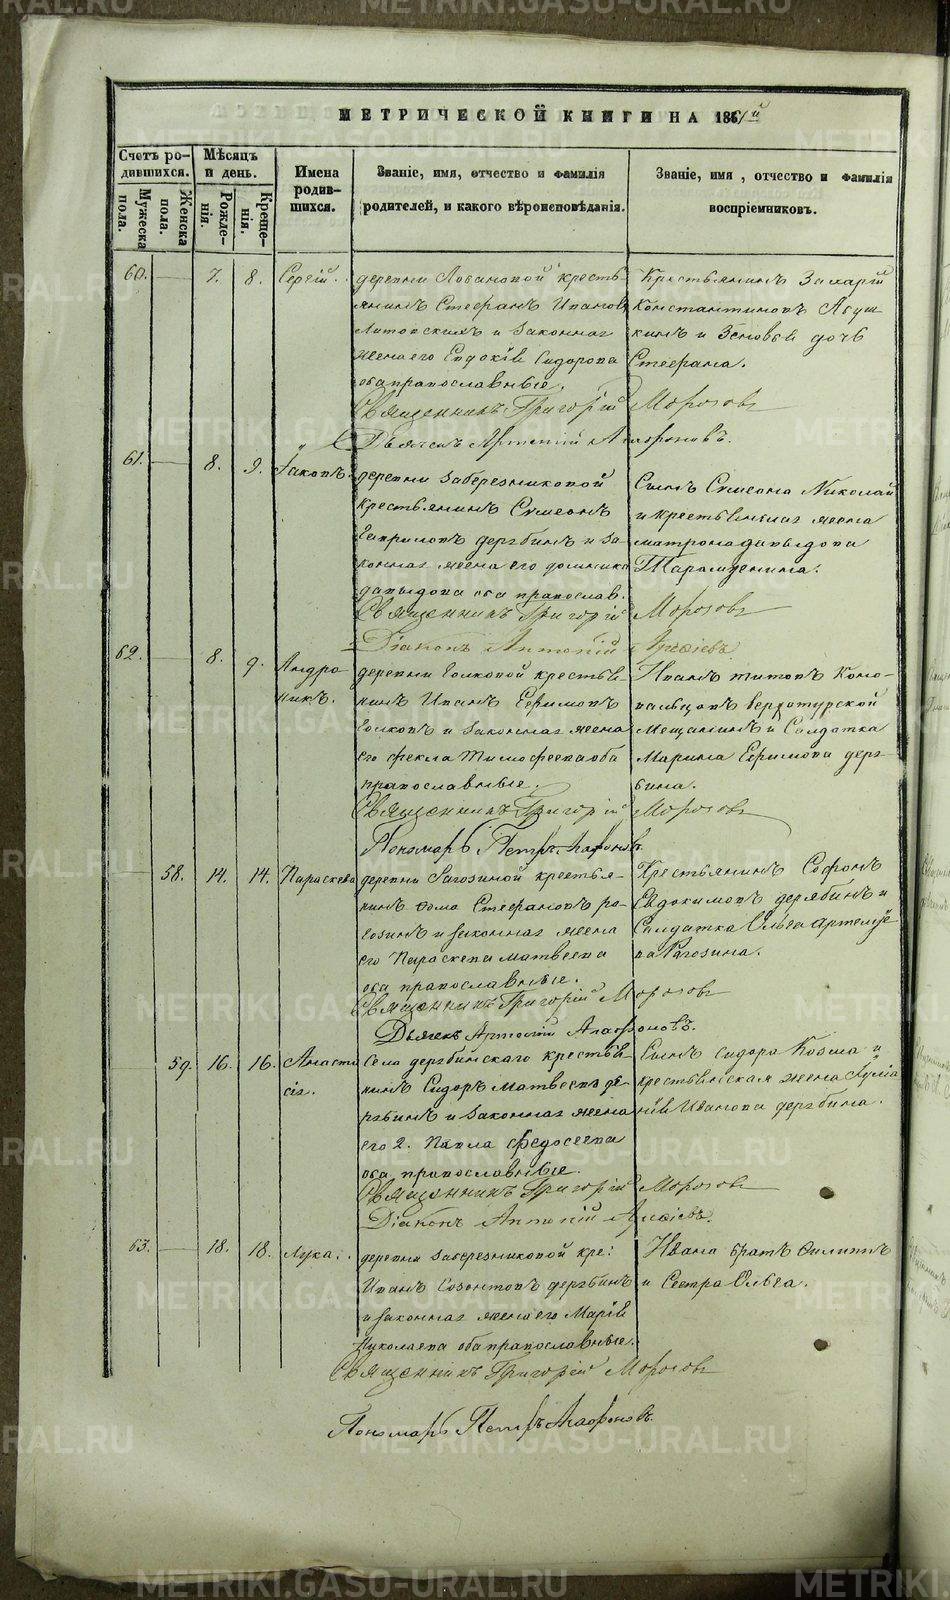 METRIKI.GASO-URAL.RU
МЕТРИЧЕСКОЙ КНИГИ НА 1861й
Счетъ родившихся.
Мужеска пола.
Женска пола.
Мѣсяцъ и день.
Рожденія.
Крещенія.
Имена родившихся.
Званіе, имя, отчество и фамилія
родителей, и какого вѣроисповѣданія.
Званіе, имя, отчество и фамилія
воспріемниковъ.
60. 7. 8. Сергій.
деревни Лобановой кресть-
янинъ Стефанъ Ивановъ
Литовскихъ и законная
жена его Евдокія Сидорова
оба православные.
Крестьянинъ Захарій
Константиновъ
и Зеновья дочь
Стефана.
Священникъ Григорій Морозовъ
Дьячекъ Артемій Агафоновъ.
61. 8. 9. Іаковъ.
деревни Заберезниковой
крестьянинъ Сумеонъ
Гавриловъ дерябинъ и за-
конная жена его домника
давыдова оба православ.
Сынъ Сумеона Николай
и крестьянская жена
матрона давыдова
Священникъ Григорій Морозовъ
Діаконъ Антоній
62. 8. 9. Андро-
никъ.
деревни Голковой крестья-
нинъ Иванъ Ефимовъ
Голковъ и законная жена
его фекла Тимофеева оба
православные.
Иванъ титовъ Коно-
валовъ верхотурской
Мещанинъ и Солдатка
Марина Ефимова деря-
бина.
Священникъ Григорій Морозовъ
Пономарь Петръ Агафоновъ
58. 14. 14. Параскева
деревни Рагозиной крестья-
нинъ Фома Стефановъ ро-
гозинъ и законная жена
его Параскева матвеева
оба православные.
Крестьянинъ Софонъ
Евдокимовъ дерябинъ и
Солдатка Ольга артемье-
ва Рагозина.
Священникъ Григорій Морозовъ
Дьячекъ Артемій Агафоновъ.
59. 16. 16. Анаста-
сія.
Села дерябинскаго крестья-
нинъ Сидоръ Матвеевъ де-
рябинъ и законная жена
его 2. Павла федосеева
оба православные.
Сынъ сидора Козма и
крестьянская жена Іуліа-
нія Иванова дерябина.
Священникъ Григорій Морозовъ
Діаконъ Антоній
63. 18. 18. Лука.
деревни Заберезниковой кре:
Иванъ Созонтовъ дерябинъ
и законная жена его Марія
Николаева оба православные.
Ивана братъ Филиппъ
и Сестра Ольга.
Священникъ Григорій Морозовъ
Пономарь Петръ Агафоновъ.
METRIKI.GASO-URAL.RU